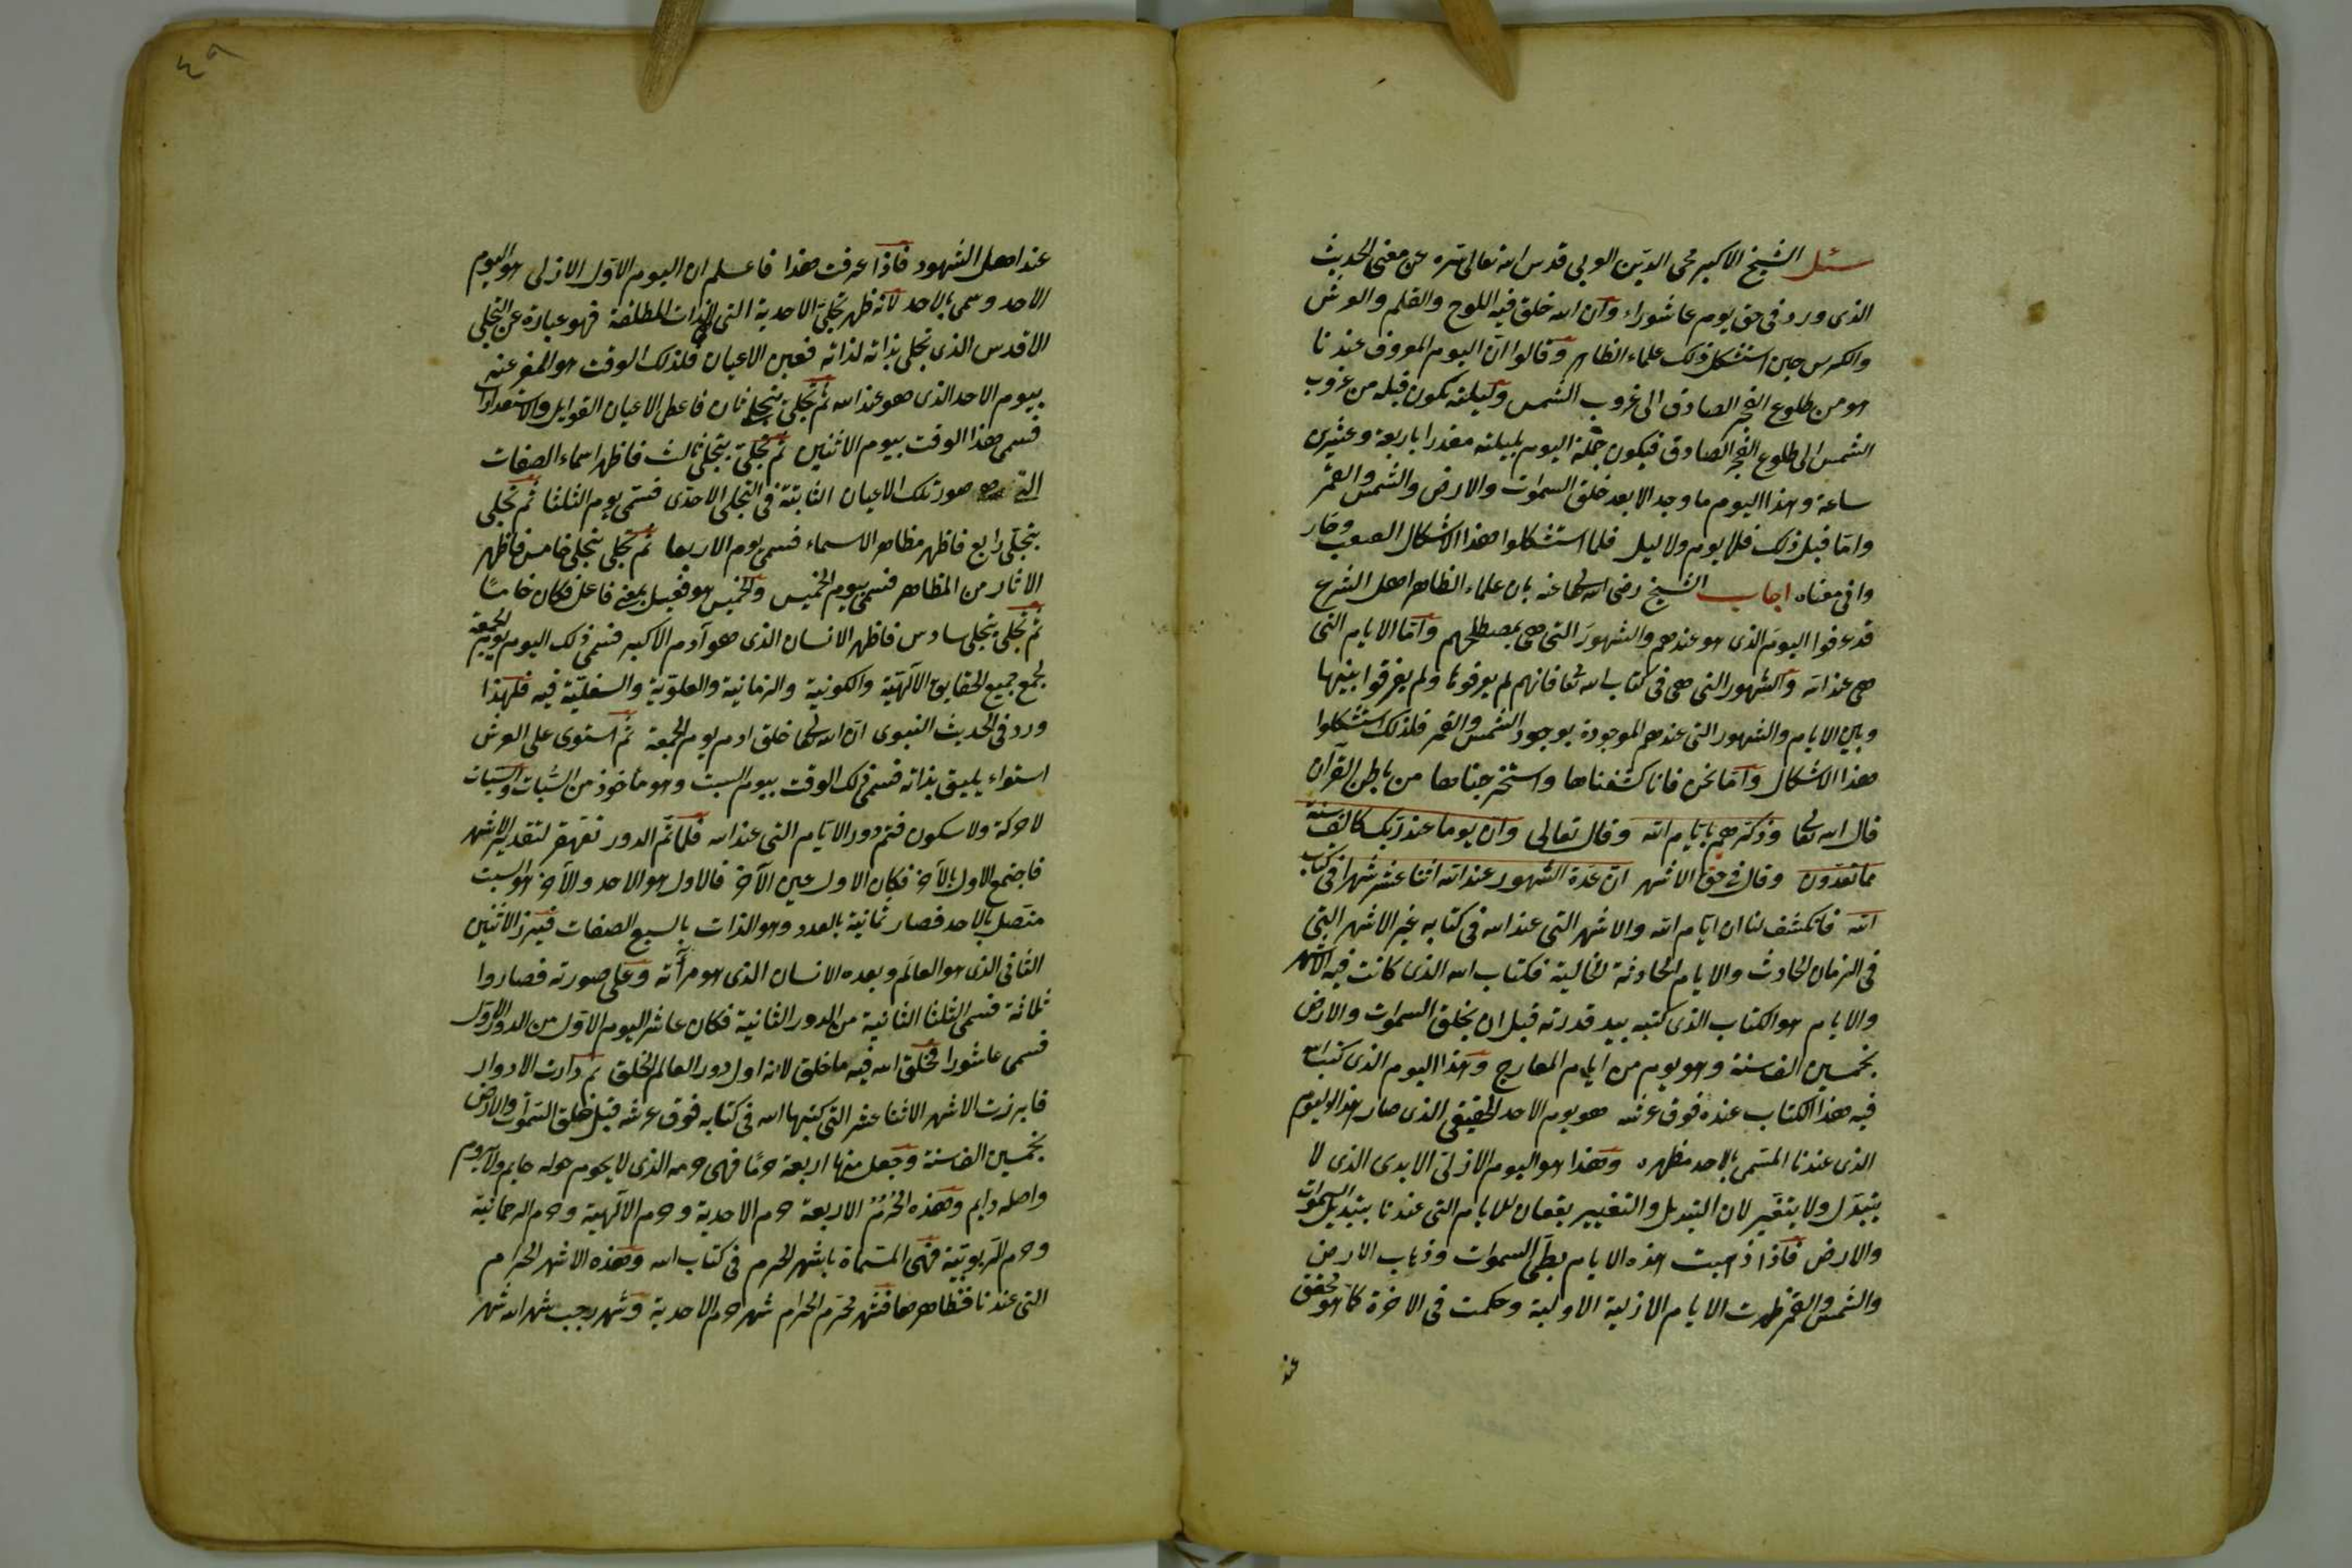 سئل الشيخ الاكبر محى الدين العربى قدس الله تعالى سره عن معنى الحديث
الذى ورد فى حق يوم عاشوراء وان الله خلق فيه اللوح والقلم والعرش
والكرس حين استشكل ذلك علماء الظاهر وقالوا ان اليوم المعروف عندنا
هو من طلوع الفجر الصادق الى غروب الشمس وليلته تكون قبله من غروب
الشمس الى طلوع الفجر الصادق فيكون جملة اليوم بليلته مقدرا باربعة وعشرين
ساعة وهذا اليوم ما وجد الا بعد خلق السموات والارض والشمس والقمر
واما قبل ذلك فلا يوم ولا ليل فلما استشكلوا هذا الاشكال الصعب وحار
وا فى معناه اجاب الشيخ رضى الله تعالى عنه بان علماء الظاهر اهل الشرع
قد عرفوا اليوم الذى هو عندهم والشهور التى هى بمصطلحهم واما الايام التى
هى عند الله والشهور التى هى فى كتاب الله تعا فانهم لم يعرفوها ولم يفرقوا بينها
وبين الايام والشهور التى عندهم الموجودة بوجود الشمس والقمر فلذلك استشكلوا
هذا الاشكال واما نحن فانا كشفناها واستخرجناها من باطن القرآن
قال الله تعالى وذكرهم بايام الله وقال تعالى وان يوما عند ربك كالف سنة
مما تعدون وقال فى حق الاشهر ان عدة الشهور عند الله اثنا عشر شهرا فى كتاب
الله فانكشف لنا ان ايام الله والاشهر التى عند الله فى كتابه غير الاشهر التى
فى الزمان الحادث والايام الحادثة الخالية فكتاب الله الذى كانت فيه الاشهر
والايام هو الكتاب الذى كتبه بيد قدرته قبل ان يخلق السموات والارض
بخمسين الف سنة وهو يوم من ايام المعارج وهذا اليوم الذى كتب الله
فيه هذا الكتاب عنده فوق عرشه هو يوم الاحد الحقيقى الذى صار هذا اليوم
الذى عندنا المسمى بالاحد مظهره وهذا هو اليوم الازلى الابدى الذى لا
يتبدل ولا يتغير لان التبديل والتغيير يقعان للايام التى عندنا بتبديل السموات
والارض فاذا ذهبت هذه الايام بطى السموات وذهاب الارض
والشمس والقمر ظهرت الايام الازلية الاولية وحكمت فى الاخرة كما هو محقق
عند
٤٩
عند اهل الشهود فاذا عرفت هذا فاعلم ان اليوم الاول الازلى هو اليوم
الاحد وسمى بالاحد لانه ظهر تجلى الاحدية التى الذات المطلقة فهو عبارة عن التجلى
الاقدس الذى تجلى بذاته لذاته فعين الاعيان فلذلك الوقت هو المعبر عنه
بيوم الاحد الذى هو عند الله ثم تجلى بتجلى ثان فاعطى الاعيان القوابل والاستعدادات
فسمى هذا الوقت بيوم الاثنين ثم تجلى بتجلى ثالث فاظهر اسماء الصفات
التى صور تلك الاعيان الثابتة فى التجلى الاحدى فسمى يوم الثلثا ثم تجلى
بتجلى رابع فاظهر مظاهر الاسماء فسمى يوم الاربعا ثم تجلى بتجلى خامس فاظهر
الاثار من المظاهر فسمى بيوم الخميس والخميس هو فعيل بمعنى فاعل فكان خامسا
ثم تجلى بتجلى سادس فاظهر الانسان الذى هو آدم الاكبر فسمى ذلك اليوم بيوم الجمعة
لجمع جميع الحقايق الآلهية والكونية والزمانية والعلوية والسفلية فيه فلهذا
ورد فى الحديث النبوى ان الله تعالى خلق ادم يوم الجمعة ثم استوى على العرش
استواء يليق بذاته فسمى ذلك الوقت بيوم السبت وهو مأخوذ من السبات والسبات
لا حركة ولا سكون فتم دور الايام التى عند الله فلما تم الدور تقهقر لتقدير الاشهر
فاجتمع الاول بالآخر فكان الاول عين الآخر فالاول هو الاحد والآخر هو السبت
متصل بالاحد فصار ثمانية بالعدد وهو الذات بالسبع الصفات فبرز الاثنين
الثانى الذى هو العالم وبعده الانسان الذى هو مرآته وعلى صورته فصاروا
ثلاثة فسمى الثلثا الثانية من الدور الثانية فكان عاشر اليوم الاول من الدور الاول
فسمى عاشورا فخلق الله فيه ما خلق لانه اول دور العالم الخلق ثم دارت الادوار
فابرزت الاشهر الاثنا عشر التى كتبها الله فى كتابه فوق عرشه قبل خلق السموات والارض
بخمسين الف سنة وجعل منها اربعة حرما فهى حرمه الذى لا يحوم حوله حايم ولا يروم
واصله دايم وهذه الحرم الاربعة حرم الاحدية وحرم الآلهية وحرم الرحمانية
وحرم الربوبية فهى المسماة باشهر الحرم فى كتاب الله وهذه الاشهر الحرام
التى عندنا فمظاهرها فشهر محرم الحرام شهر حرم الاحدية وشهر رجب شهر الله شهر